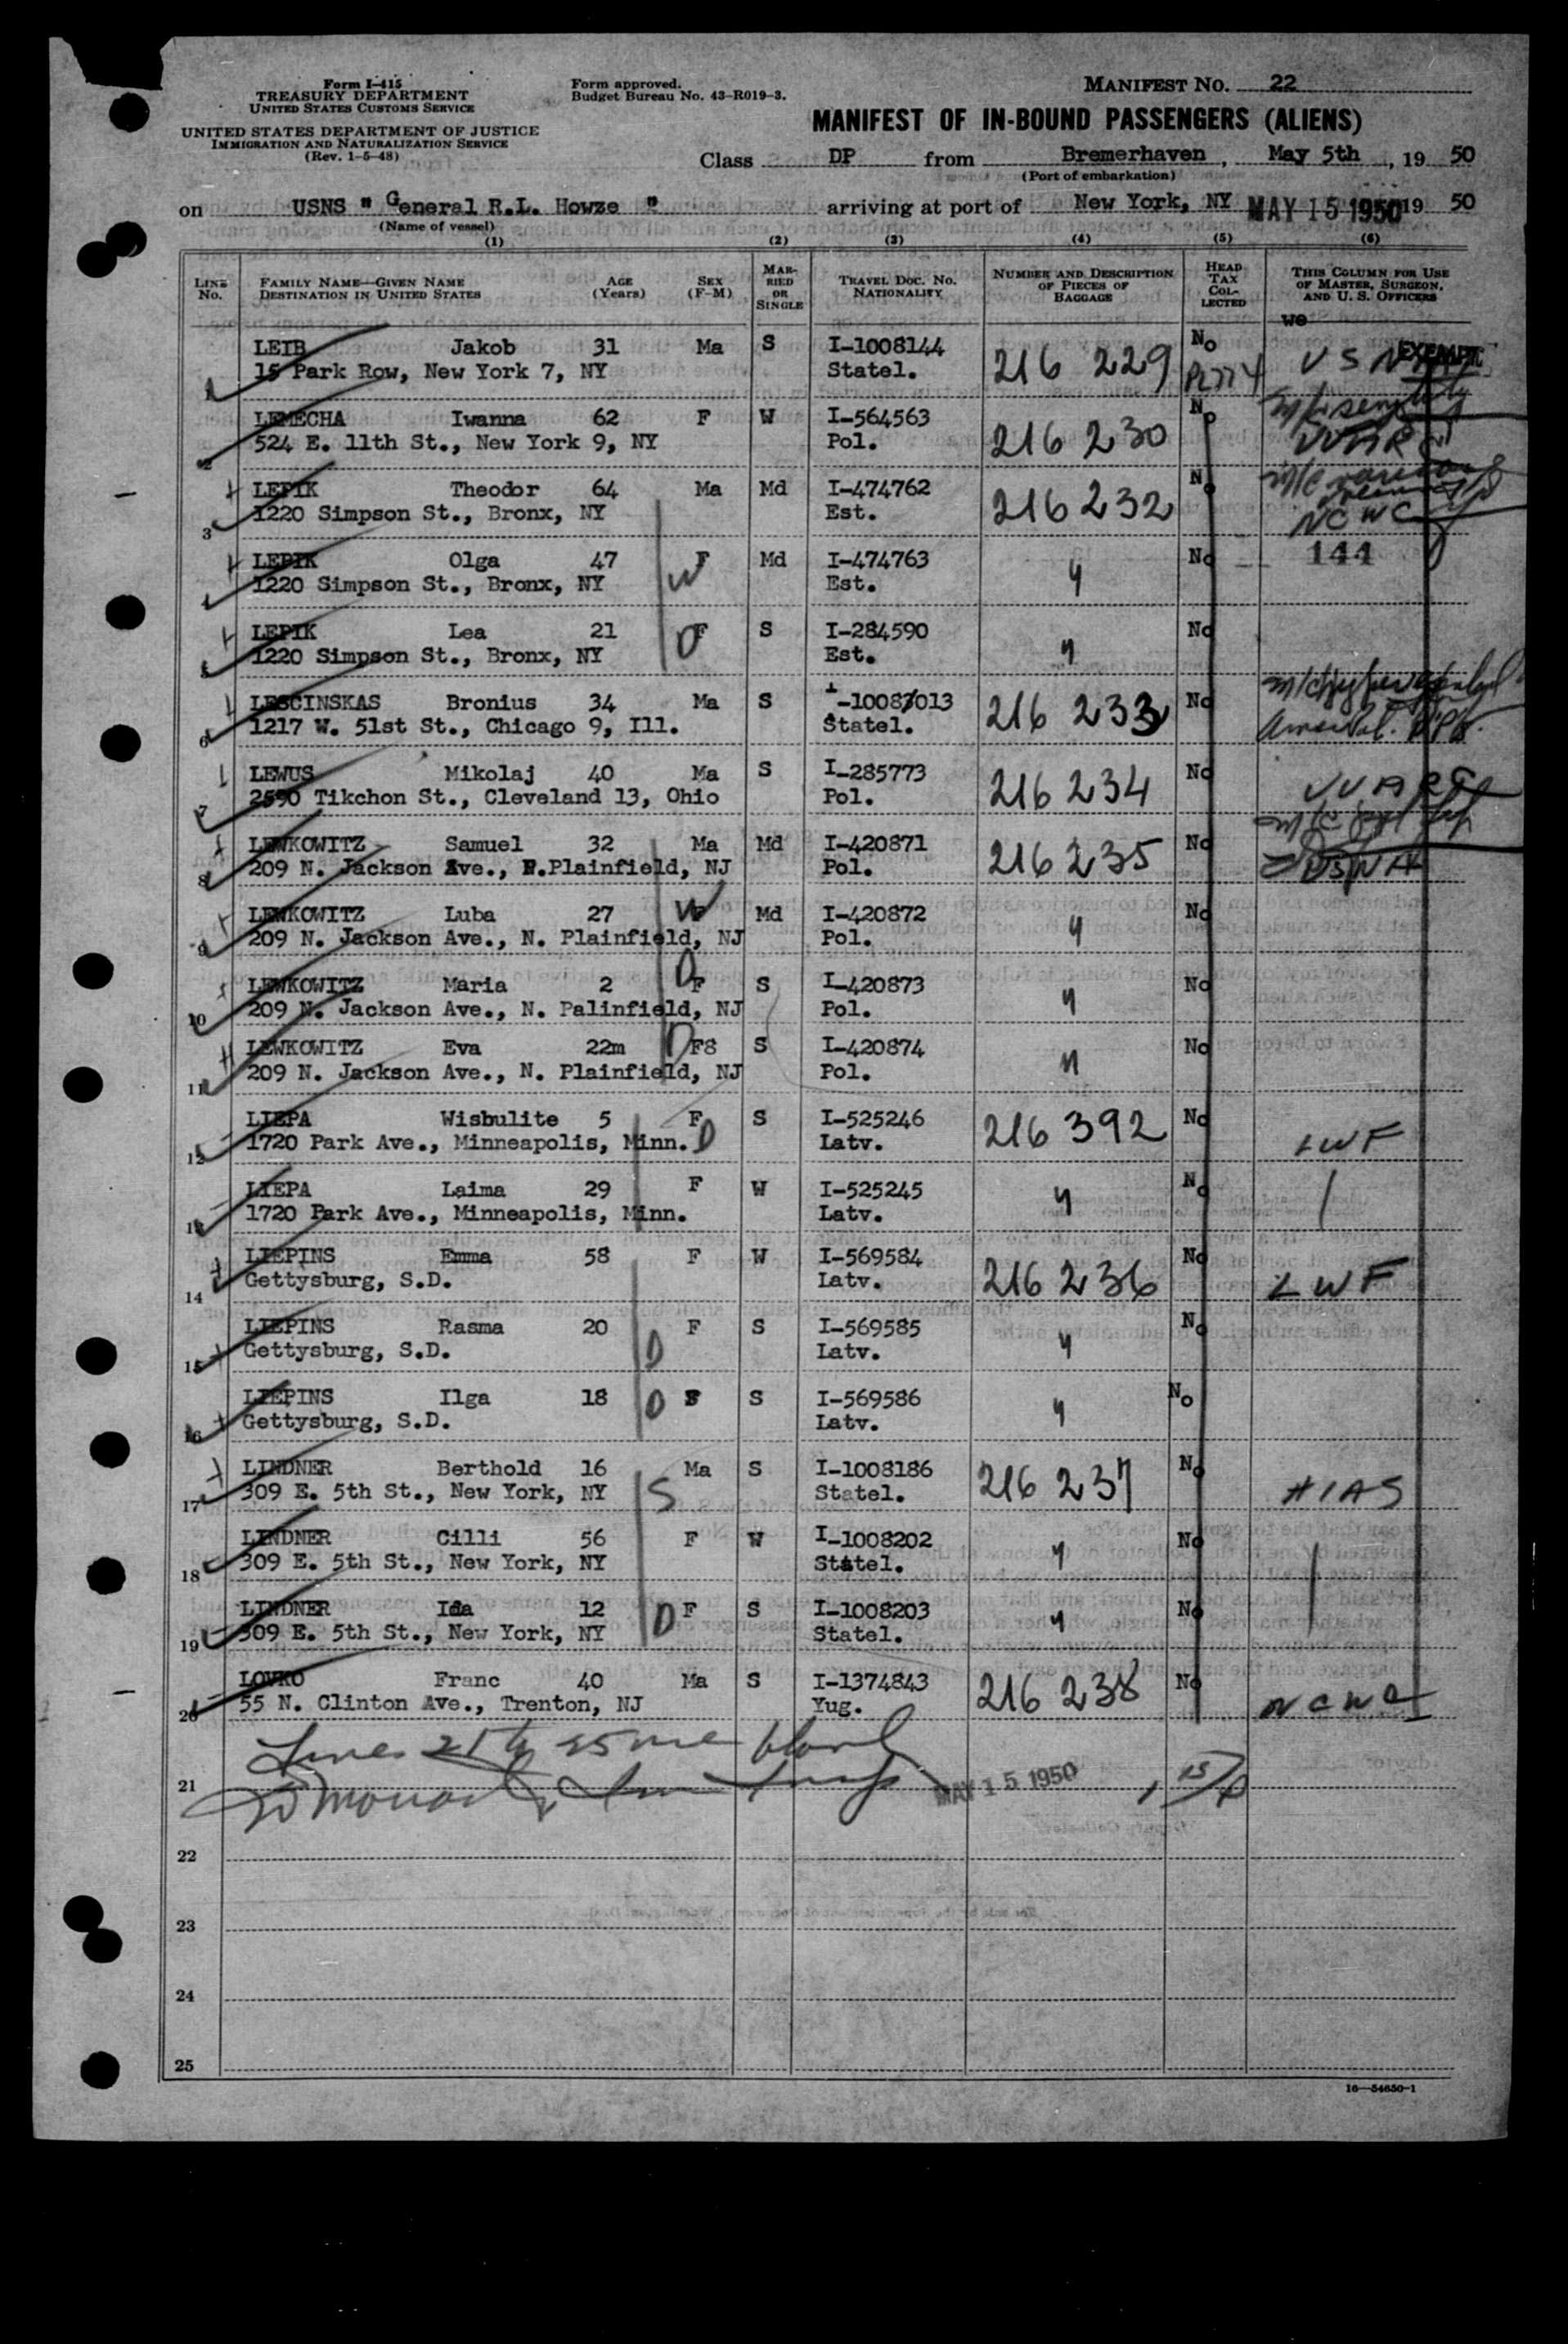 Form I-415
TREASURY DEPARTMENT
UNITED STATES CUSTOMS SERVICE
UNITED STATES DEPARTMENT OF JUSTICE
IMMIGRATION AND NATURALIZATION SERVICE
(Rev. 1-5-48)
Form approved.
Budget Bureau No. 43-R019-3.
MANIFEST NO. 22
MANIFEST OF IN-BOUND PASSENGERS (ALIENS)
Class DP from Bremerhaven, May 5th, 19 50
(Port of embarkation)
on USNS " General R.L. Howze " arriving at port of New York, NY MAY 15 1950 19 50
(Name of vessel)
(1) (2) (3) (4) (5) (6)
LINE No. FAMILY NAME—GIVEN NAME DESTINATION IN UNITED STATES AGE (Years) SEX (F-M) MARRIED OR SINGLE TRAVEL DOC. NO. NATIONALITY NUMBER AND DESCRIPTION OF PIECES OF BAGGAGE HEAD TAX COLLECTED THIS COLUMN FOR USE OF MASTER, SURGEON, AND U. S. OFFICERS
we
1 LEIB Jakob 31 Ma S I-1008144 216 229 No EXEMPT
15 Park Row, New York 7, NY Statel.
2 LEMECHA Iwanna 62 F W I-564563 216 230 No
524 E. 11th St., New York 9, NY Pol.
3 LEPIK Theodor 64 Ma Md I-474762 216 232 No
1220 Simpson St., Bronx, NY Est. NCWC
4 LEPIK Olga 47 F Md I-474763 " No 144
1220 Simpson St., Bronx, NY W Est.
5 LEPIK Lea 21 F S I-284590 " No
1220 Simpson St., Bronx, NY D Est.
6 LESCINSKAS Bronius 34 Ma S I-10087013 216 233 No
1217 W. 51st St., Chicago 9, Ill. Statel.
7 LEWUS Mikolaj 40 Ma S I-285773 216 234 No
2590 Tikchon St., Cleveland 13, Ohio Pol.
8 LEWKOWITZ Samuel 32 Ma Md I-420871 216 235 No
209 N. Jackson Ave., N.Plainfield, NJ Pol. USNA
9 LEWKOWITZ Luba 27 W F Md I-420872 " No
209 N. Jackson Ave., N. Plainfield, NJ Pol.
10 LEWKOWITZ Maria 2 D F S I-420873 " No
209 N. Jackson Ave., N. Palinfield, NJ Pol.
11 LEWKOWITZ Eva 22m D F8 S I-420874 " No
209 N. Jackson Ave., N. Plainfield, NJ Pol.
12 LIEPA Wisbulite 5 F S I-525246 216 392 No
1720 Park Ave., Minneapolis, Minn. D Latv. LWF
13 LIEPA Laima 29 F W I-525245 " No
1720 Park Ave., Minneapolis, Minn. Latv.
14 LIEPINS Emma 58 F W I-569584 216 236 No
Gettysburg, S.D. Latv. LWF
15 LIEPINS Rasma 20 F S I-569585 " No
Gettysburg, S.D. D Latv.
16 LIEPINS Ilga 18 D F S I-569586 " No
Gettysburg, S.D. Latv.
17 LINDNER Berthold 16 Ma S I-1008186 216 237 No
309 E. 5th St., New York, NY S Statel. HIAS
18 LINDNER Cilli 56 F W I-1008202 " No
309 E. 5th St., New York, NY Statel.
19 LINDNER Ida 12 D F S I-1008203 " No
309 E. 5th St., New York, NY Statel.
20 LOVKO Franc 40 Ma S I-1374843 216 238 No
55 N. Clinton Ave., Trenton, NJ Yug. NCWC
Lines 21 to 25 blank
21 MAY 15 1950
22
23
24
25
16—54650-1